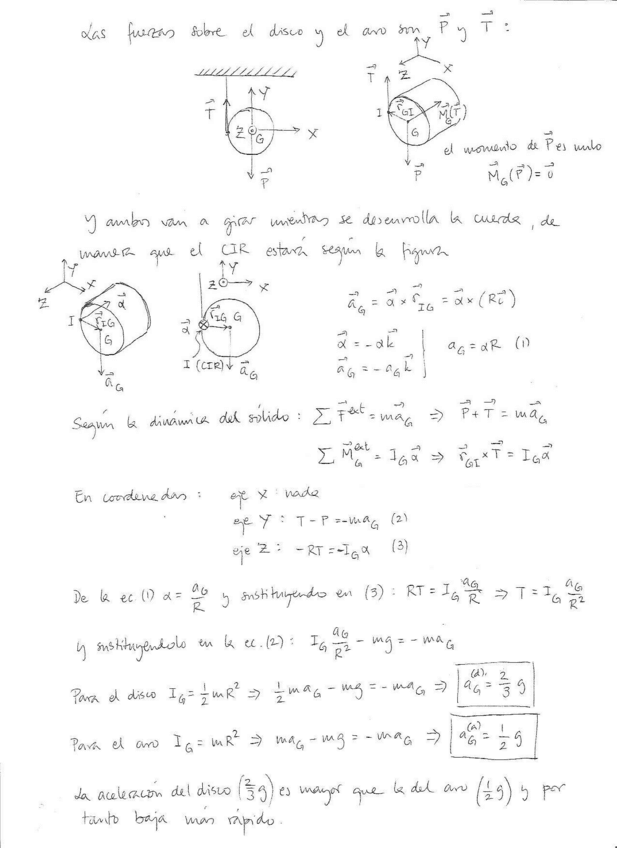 Las fuerzas sobre el disco y el aro son P⃗ y T⃗ :
T⃗ Y Z G X P⃗
Y X Z T⃗ I r⃗_GI M⃗_G(T⃗) G P⃗
el momento de P⃗ es nulo
M⃗_G(P⃗) = 0⃗
Y ambos van a girar mientras se desenrolla la cuerda, de
manera que el CIR estará según la figura
Y Z X I α⃗ r⃗_IG G a⃗_G
Y Z X α⃗ r⃗_IG G I (CIR) a⃗_G
a⃗_G = α⃗ × r⃗_IG = α⃗ × (R i⃗)
α⃗ = -α k⃗
a⃗_G = -a_G k⃗ | a_G = αR (1)
Según la dinámica del sólido : ∑ F⃗^ext = m a⃗_G ⇒ P⃗ + T⃗ = m a⃗_G
∑ M⃗_G^ext = I_G α⃗ ⇒ r⃗_GI × T⃗ = I_G α⃗
En coordenadas : eje X : nada
eje Y : T - P = -m a_G (2)
eje Z : -RT = -I_G α (3)
De la ec. (1) α = a_G/R y sustituyendo en (3) : RT = I_G a_G/R ⇒ T = I_G a_G/R²
y sustituyéndolo en la ec. (2) : I_G a_G/R² - mg = -m a_G
Para el disco I_G = 1/2 mR² ⇒ 1/2 m a_G - mg = -m a_G ⇒ a_G^(d) = 2/3 g
Para el aro I_G = mR² ⇒ m a_G - mg = -m a_G ⇒ a_G^(a) = 1/2 g
La aceleración del disco (2/3 g) es mayor que la del aro (1/2 g) y por
tanto baja más rápido.